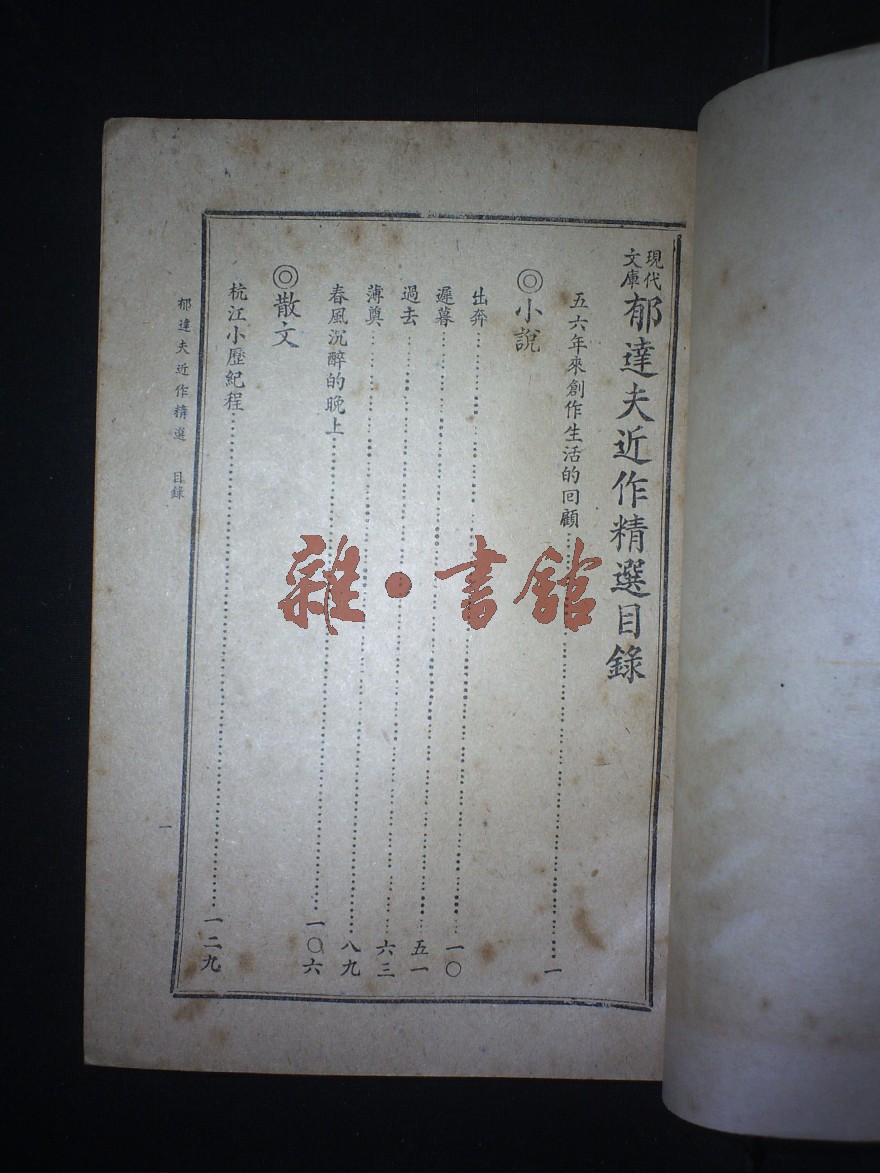 現代文庫 郁達夫近作精選目錄
五六年來創作生活的回顧……一
◎小說
出奔……一〇
遲暮……五一
過去……六三
薄奠……八九
春風沉醉的晚上……一〇六
◎散文
杭江小歷紀程……一二九
郁達夫近作精選 目錄
一
雜·書館